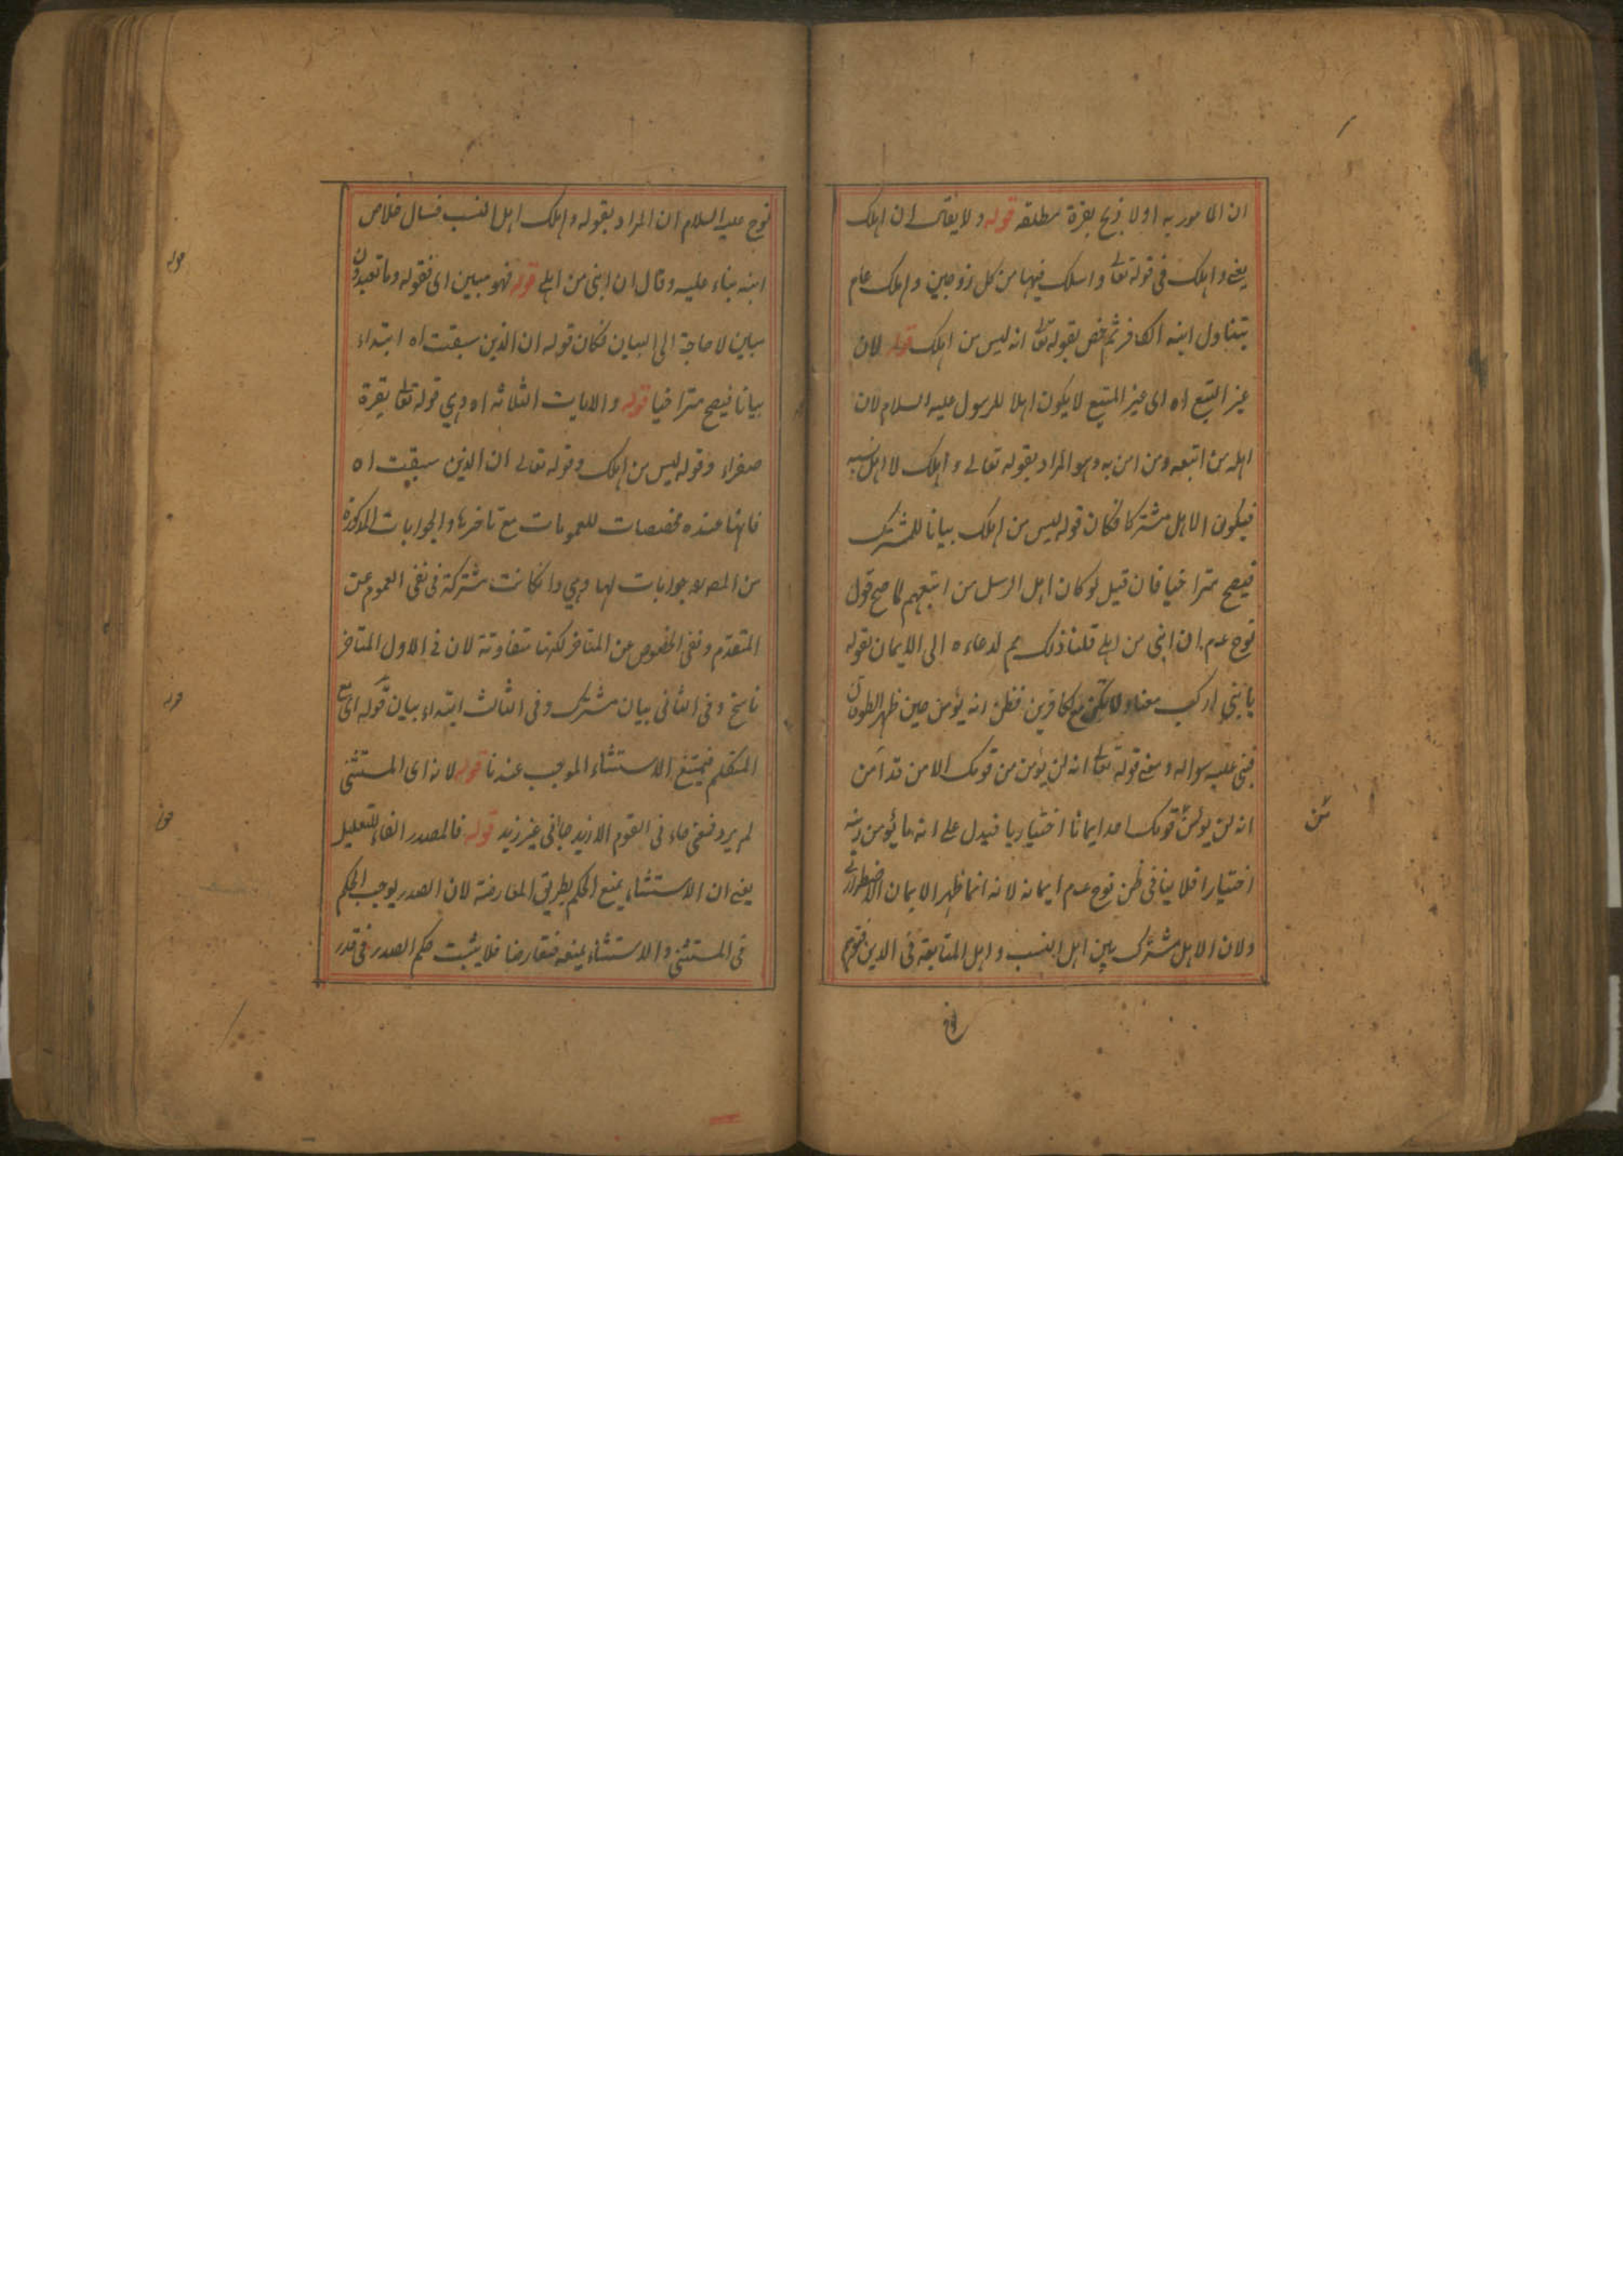 ان المامور به اولا ذبح بقرة مطلقه قوله ولا يقال ان اهلك
يعنى واهلك فى قوله تعالى واسلك فيها من كل زوجين واهلك عام
يتناول ابنه الكافر ثم خص بقوله تعالى انه ليس من اهلك قوله لان
غير المتبع اه اى غير المتبع لا يكون اهلا للرسول عليه السلام لان
اهله من اتبعه ومن امن به وهو المراد بقوله تعالى واهلك لا اهل نسبه
فيكون الاهل مشتركا فكان قوله ليس من اهلك بيانا للمشترك
فيصح متراخيا فان قيل لو كان اهل الرسل من اتبعهم لما صح قول
نوح عدم ان ابنى من اهلى قلنا ذلك لدعاءه الى الايمان بقوله
يا بنى اركب معنا ولا تكن مع الكافرين فظن انه يؤمن حين ظهر الطوفان
فبنى عليه سواله ومعنى قوله تعالى انه لن يؤمن من قومك الا من قد آمن
انه لن يؤمن قومك احد ايمانا اختياريا فيدل على انه ما يؤمن ابنه
اختيارا فلا ينافى ظن نوح عدم ايمانه لانه انما ظهر الايمان الاضطرارى
ولان الاهل مشترك بين اهل النسب واهل المتابعة فى الدين فتوهم
نوح
من
نوح عليه السلام ان المراد بقوله واهلك اهل النسب فسال خلاص
ابنه بناء عليه وقال ان ابنى من اهلى قوله فهو مبين اى فقوله وما تعبدون
مباين لا حاجة الى البيان فكان قوله ان الذين سبقت اه ابتداء
بيانا فيصح متراخيا قوله والايات الثلاثه اه وهي قوله تعالى بقرة
صفراء وقوله ليس من اهلك وقوله تعالى ان الذين سبقت اه
فانها عنده مخصصات للعمومات مع تاخرها والجوابات المذكورة
من المصر جوابات لها وهي وان كانت مشتركة فى نفى العموم عن
المتقدم ونفى الخصوص عن المتاخر لكنها متفاوتة لان فى الاول المتاخر
ناسخ وفى الثانى بيان مشترك وفى الثالث ابتداء بيان قوله اى
المتكلم فيمتنع الاستثناء الموجب عندنا قوله لانه اى المستثنى
لم يرد فمعنى جاء نى القوم الا زيد جاءنى غير زيد قوله فالمصدر الفاء للتعليل
يعنى ان الاستثناء يمنع الحكم بطريق المعارضة لان الصدر يوجب الحكم
فى المستثنى والاستثناء يمنعه فتعارضا فلا يثبت حكم الصدر فى قدر
قوله
قوله